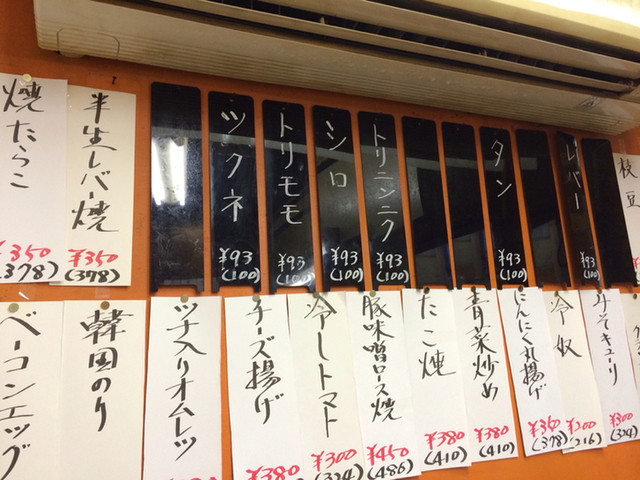 焼たらこ
¥350
(378)
半生レバー焼
¥350
(378)
ツクネ
¥93
(100)
トリモモ
¥93
(100)
シロ
¥93
(100)
トリニンニク
¥93
(100)
タン
¥93
(100)
レバー
¥93
枝豆
ベーコンエッグ
韓国のり
ツナ入りオムレツ
チーズ揚げ
¥380
冷しトマト
¥300
(324)
豚味噌ロース焼
¥450
(486)
たこ焼
¥380
(410)
青菜炒め
¥380
(410)
にんにく丸揚げ
¥350
(378)
冷奴
¥200
(216)
みそキューリ
¥300
(324)